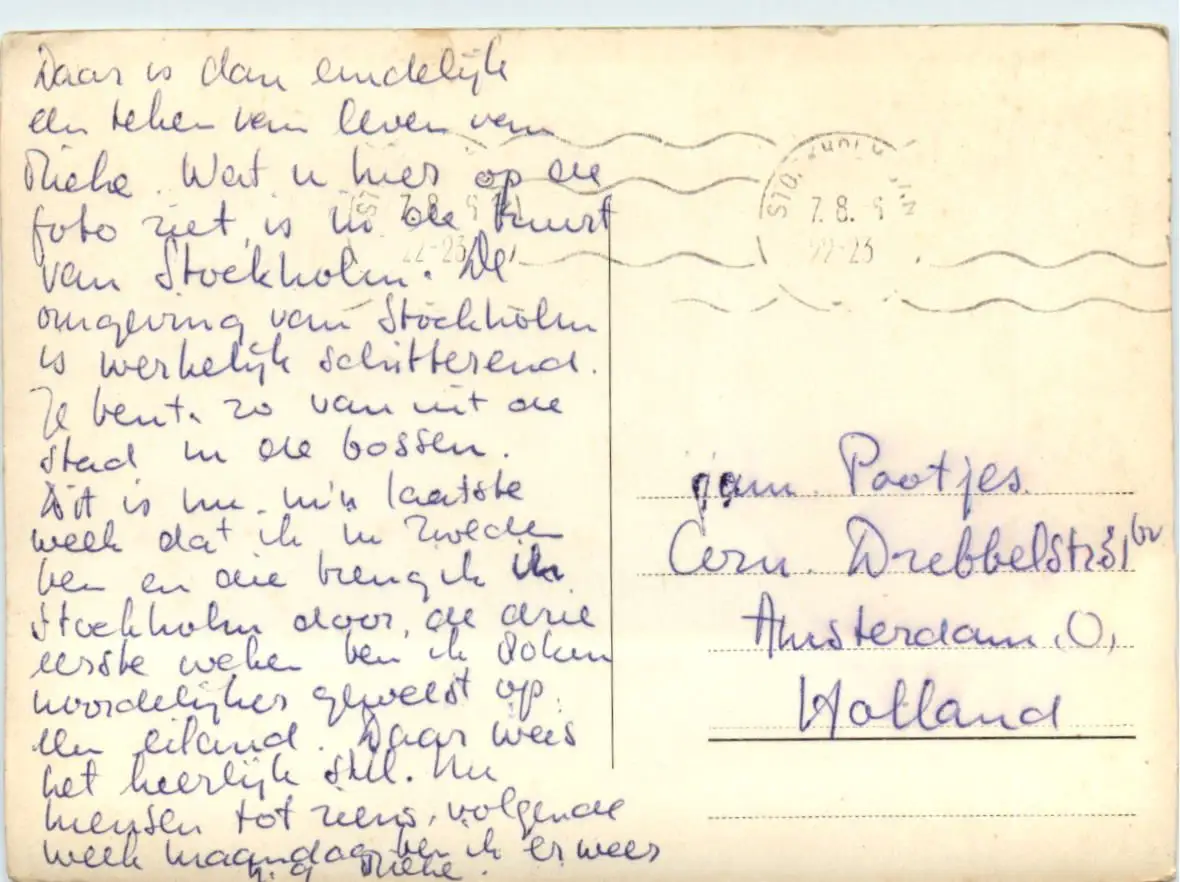 Daar is dan eindelijk
een teken van leven van
Rieke. Wat u hier op de
foto ziet, is in de buurt
van Stockholm. De
omgeving van Stockholm
is werkelijk schitterend.
Je bent zo van uit de
stad in de bossen.
Dit is nu m'n laatste
week dat ik in Zweden
ben en die breng ik in
Stockholm door, de drie
eerste weken ben ik
noordelijker geweest op
een eiland. Daar was
het heerlijk stil. Nu
mensen tot ziens, volgende
week maandag ben ik er weer
h.g. Rieke.
7.8.
22-23
7.8.
22-23
fam. Pootjes
Corn. Drebbelstr 31 hv
Amsterdam, O,
Holland